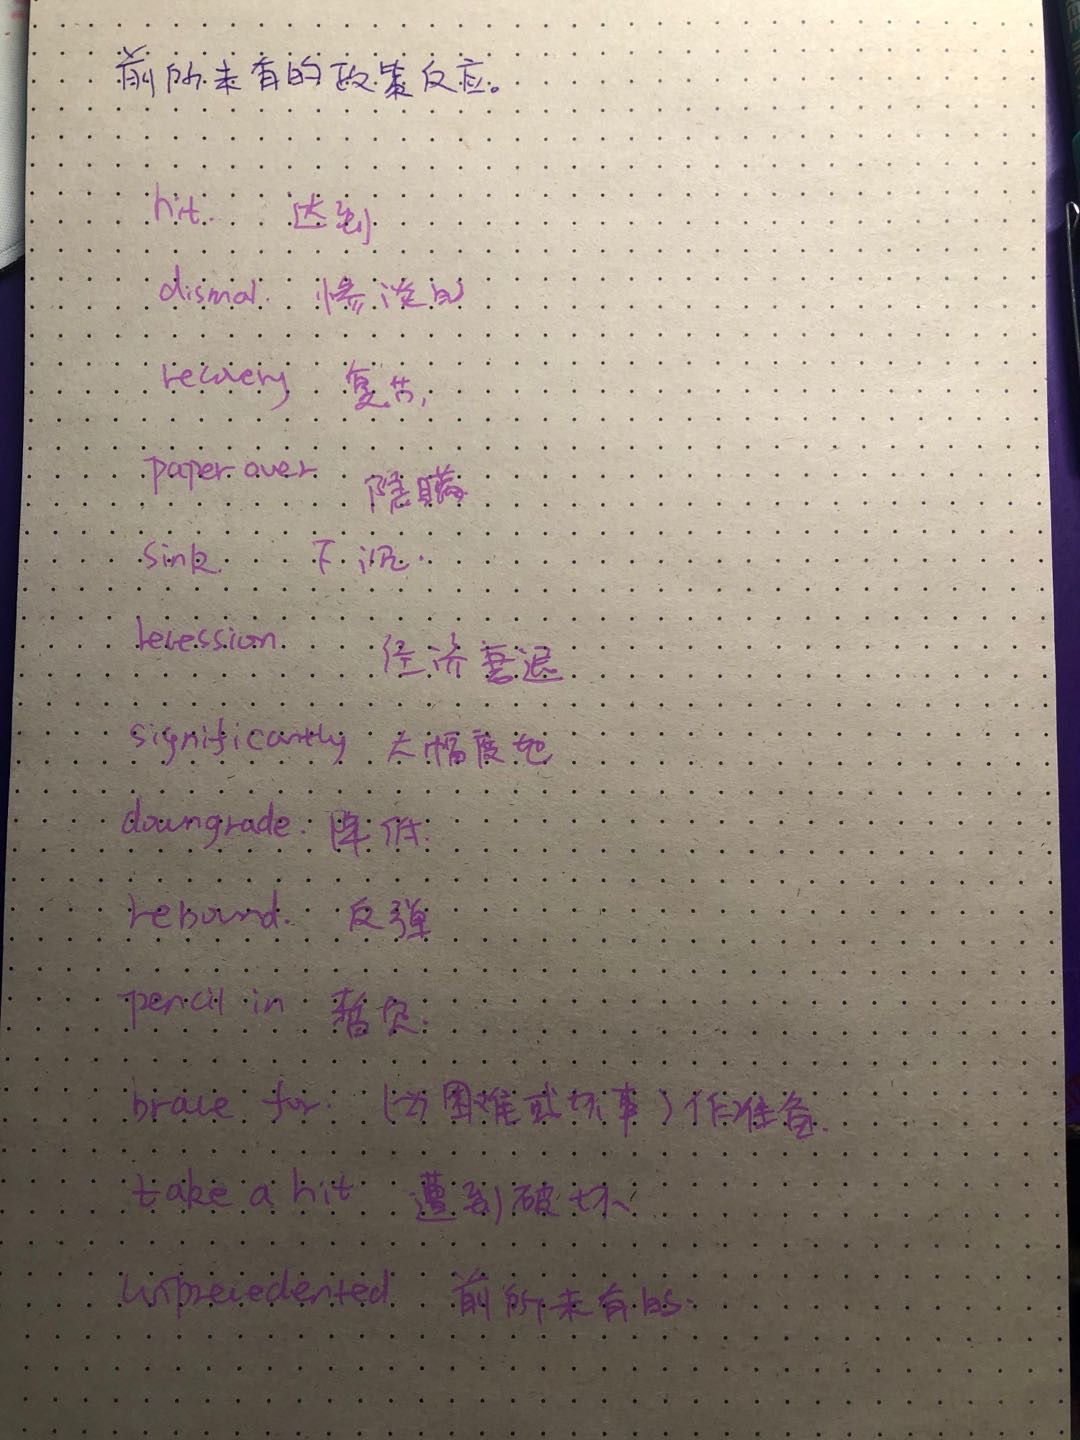 前所未有的政策反应。
hit. 达到
dismal. 惨淡的
recovery 复苏,
paper over 隐瞒
sink. 下沉.
recession. 经济衰退
significantly 大幅度地
downgrade. 降低.
rebound. 反弹
pencil in 暂定.
brace for. (为困难或坏事)作准备.
take a hit 遭到破坏
unprecedented 前所未有的.